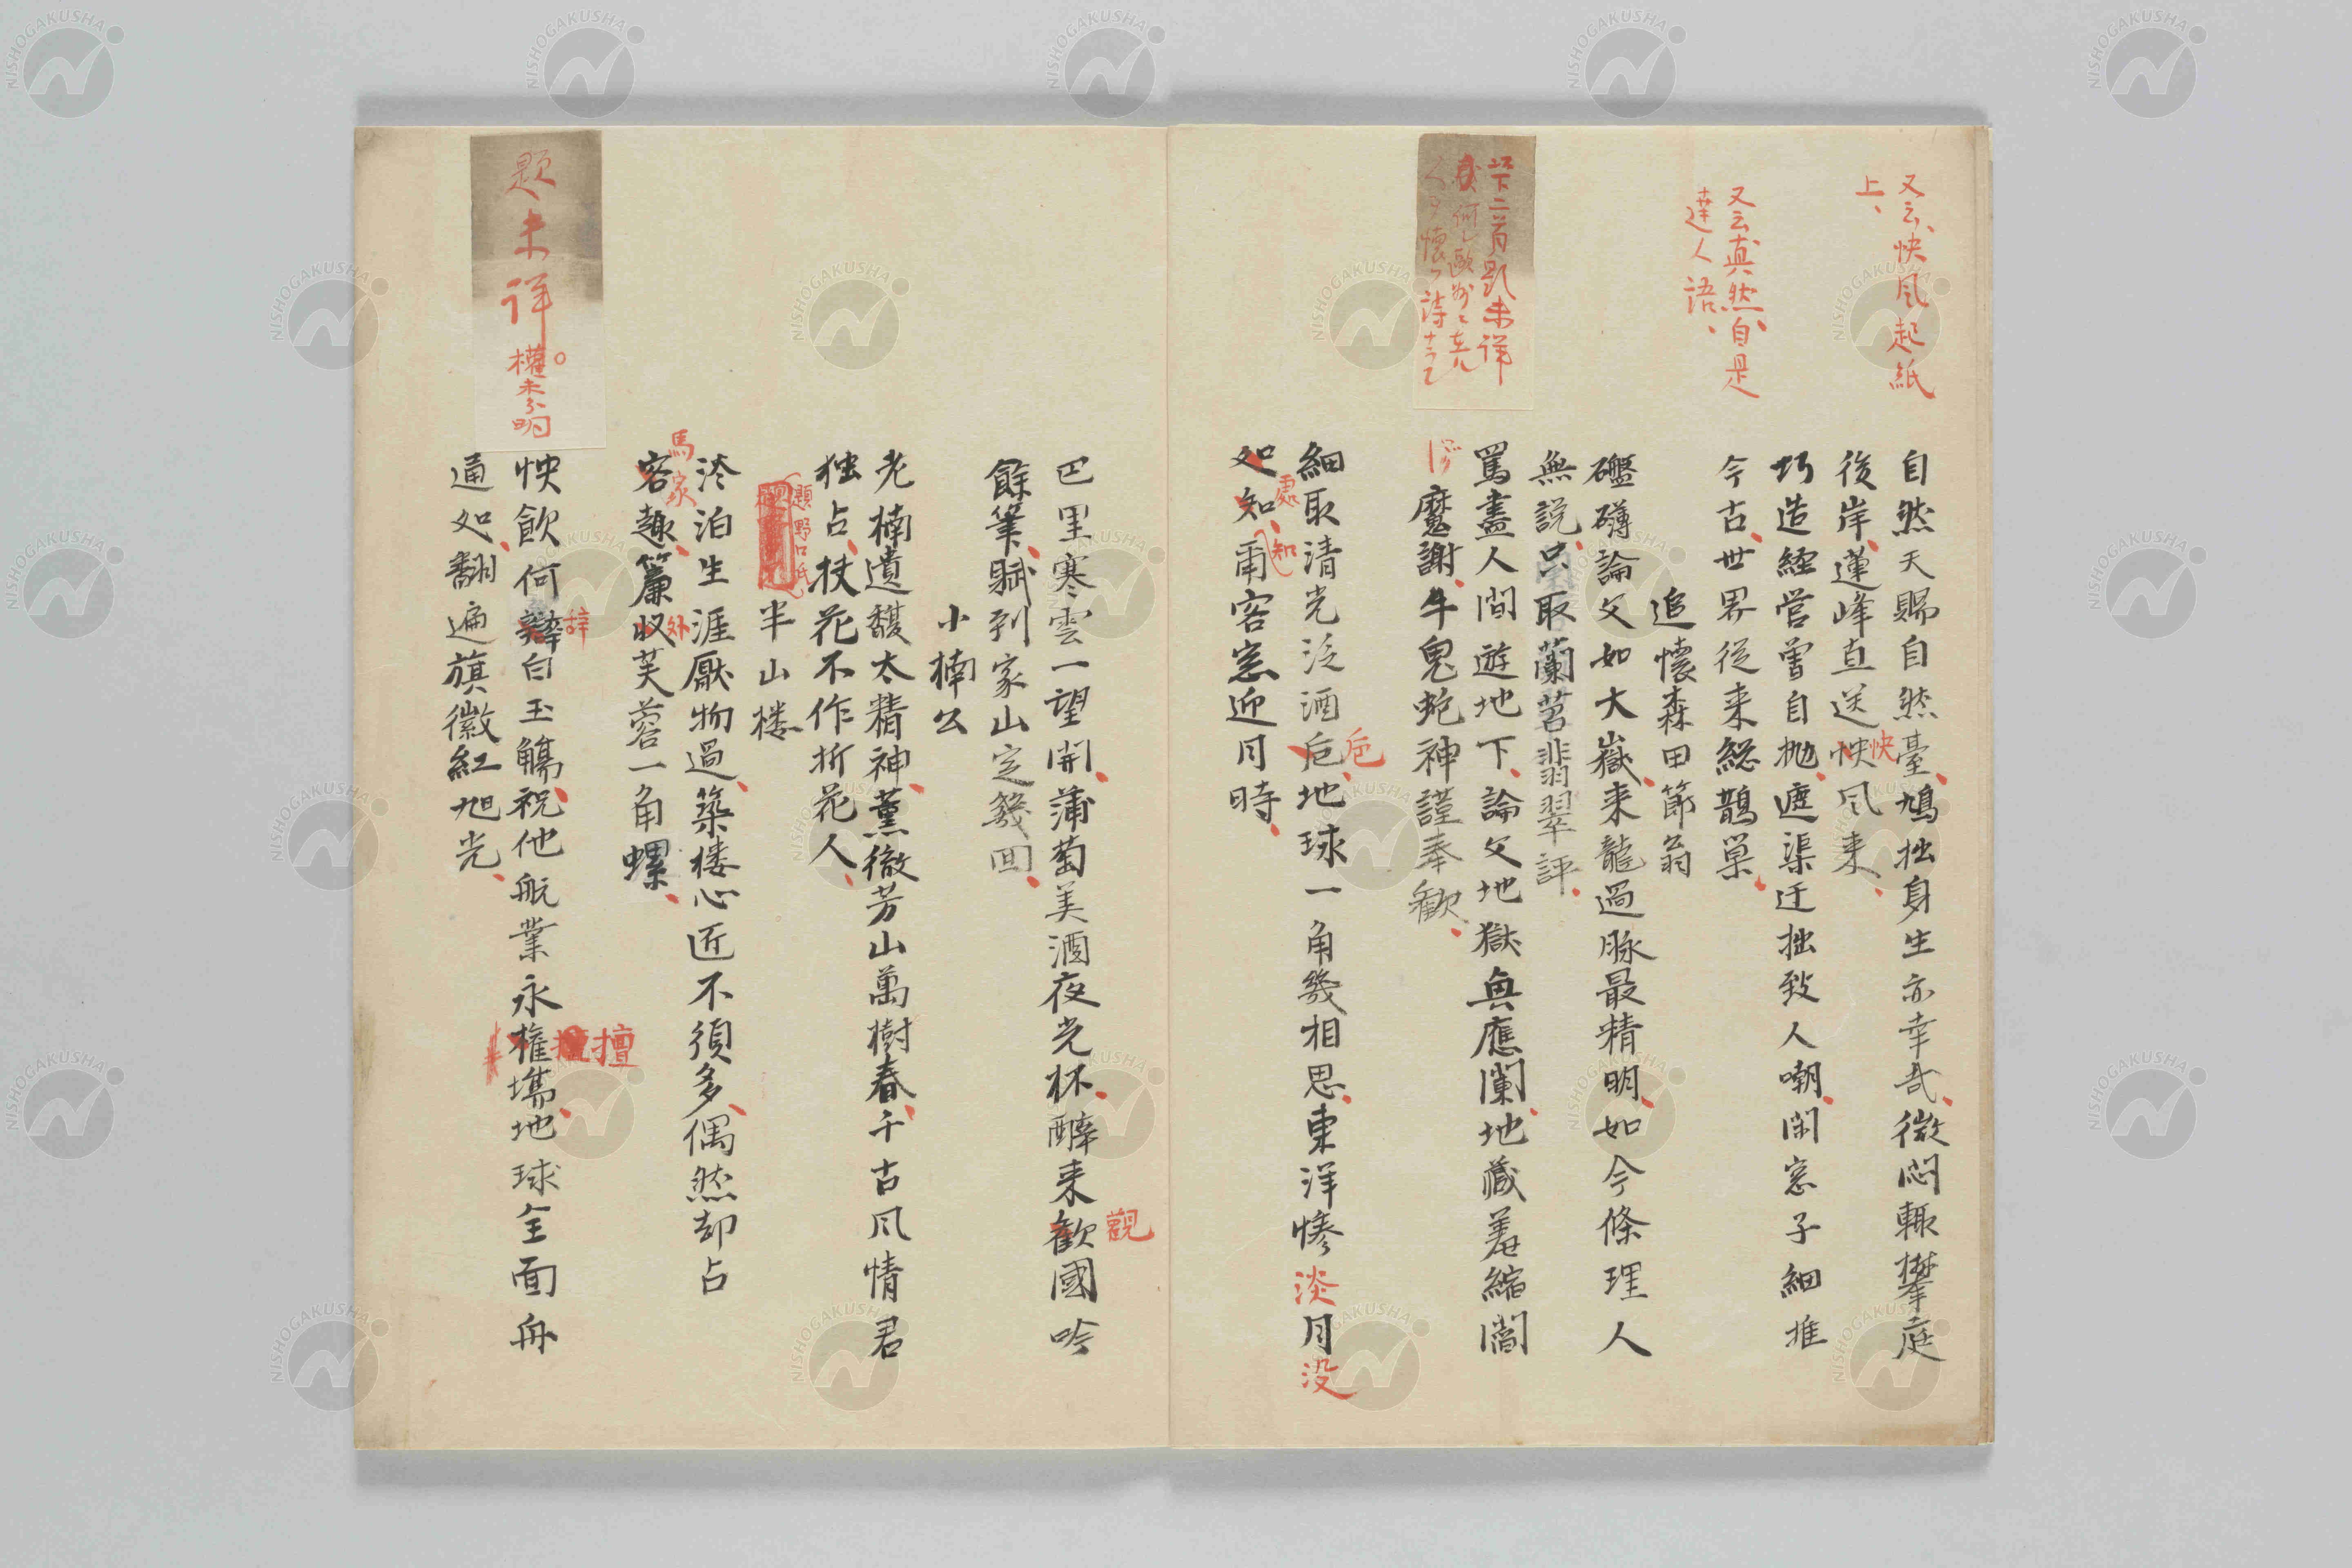 又云、快風起紙
上、
又云真然、自是
達人語、
自然天賜自然臺、鳩拙身生亦幸哉、微悶輙攀庭
後岸、蓮峰直送怏風来、
快
巧造経営曽自抛、遮渠迂拙致人嘲、閑窓子細推
今古、世界従来総鵲巣、
追懐森田節翁
礚礴論文如大嶽、来龍過脉最精明、如今條理人
無説、只取蘭苕翡翠評、
罵盡人間遊地下、論文地獄輿應闌、地蔵羞縮閻
魔謝、牛鬼蛇神謹奉歓、
苹二首題未詳
細取清光泛酒巵、地球一角幾相思、東洋惨淡月没
巵
如知、甭客窓迎月時、
處
知
巴里寒雲一望開、蒲萄美酒夜光杯、酔来歓國吟
觀
餘筆、賦到家山定幾回、
小楠公
老楠遺馥太精神、薫徹芳山萬樹春、千古风情君
独占、扶花不作折花人、
題野口氏
半山楼
冷泊生涯厭物過、築楼心匠不須多、偶然却占
容趣、簾収芙蓉一角螺、
馬家
外
題未詳
權未分明
怏飲何辤白玉觴、祝他航業永権壔、地球全面舟
辞
擅
通如、翻遍旗徽紅旭光、
NISHOGAKUSHA